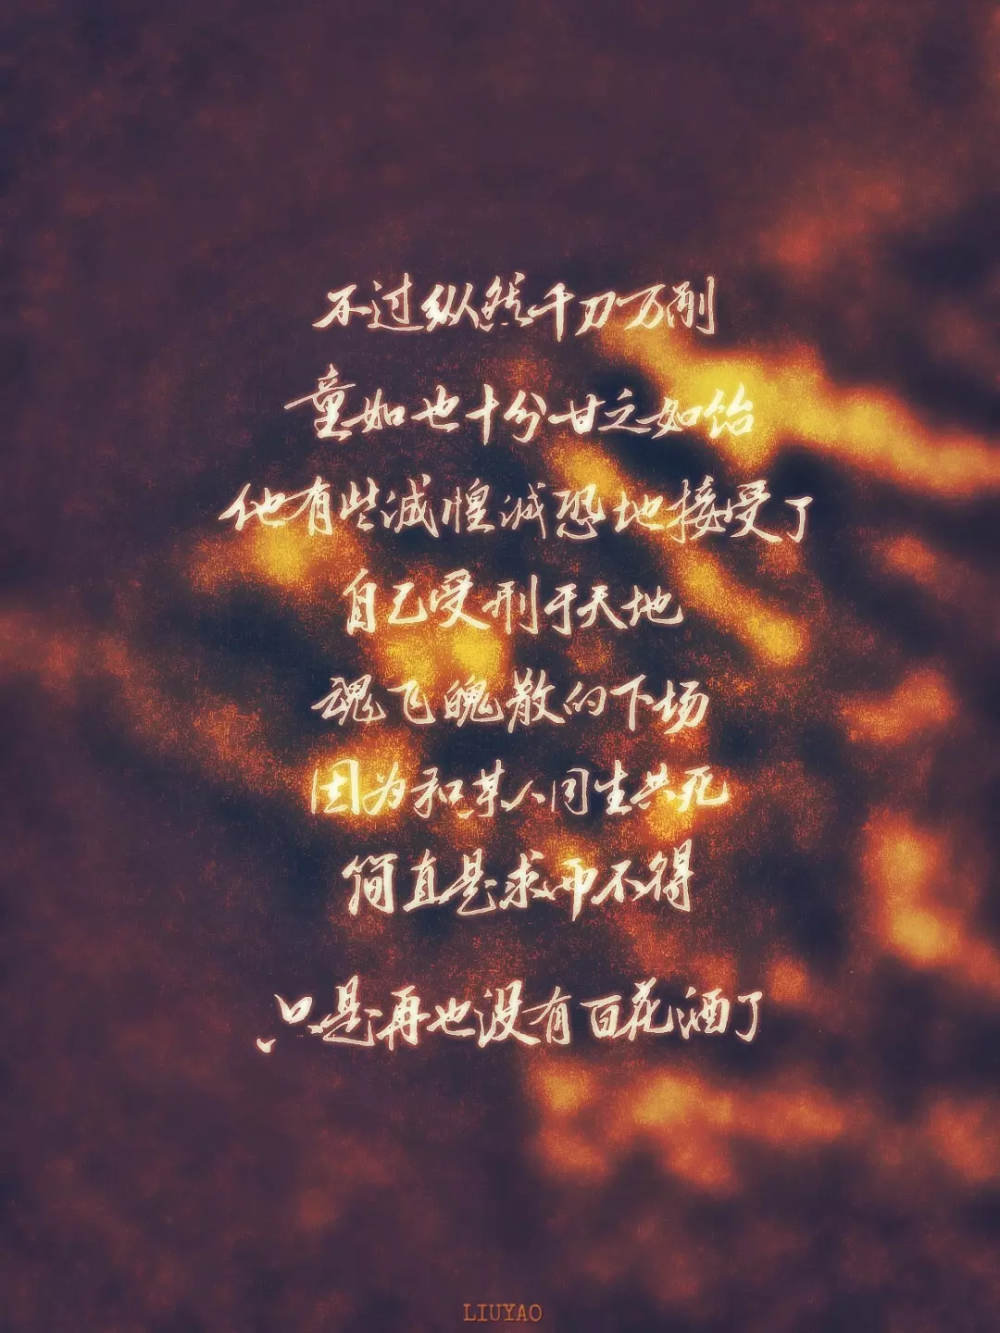 不过纵然千刀万剐
童如也十分甘之如饴
他有些诚惶诚恐地接受了
自己受刑于天地
魂飞魄散的下场
因为和某人同生共死
简直是求而不得
只是再也没有百花酒了
LIUYAO